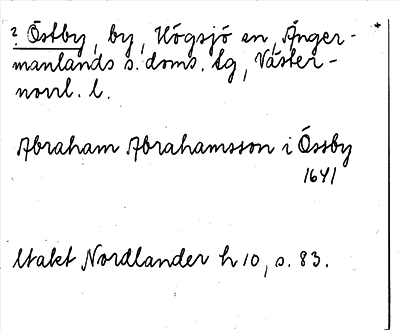 ? Östby, by, Högsjö sn, Ånger- *
manlands s. doms. tg, Väster-
norrl. l.
Abraham Abrahamsson i Össby
1641
Utakt Nordlander h 10, s. 83.